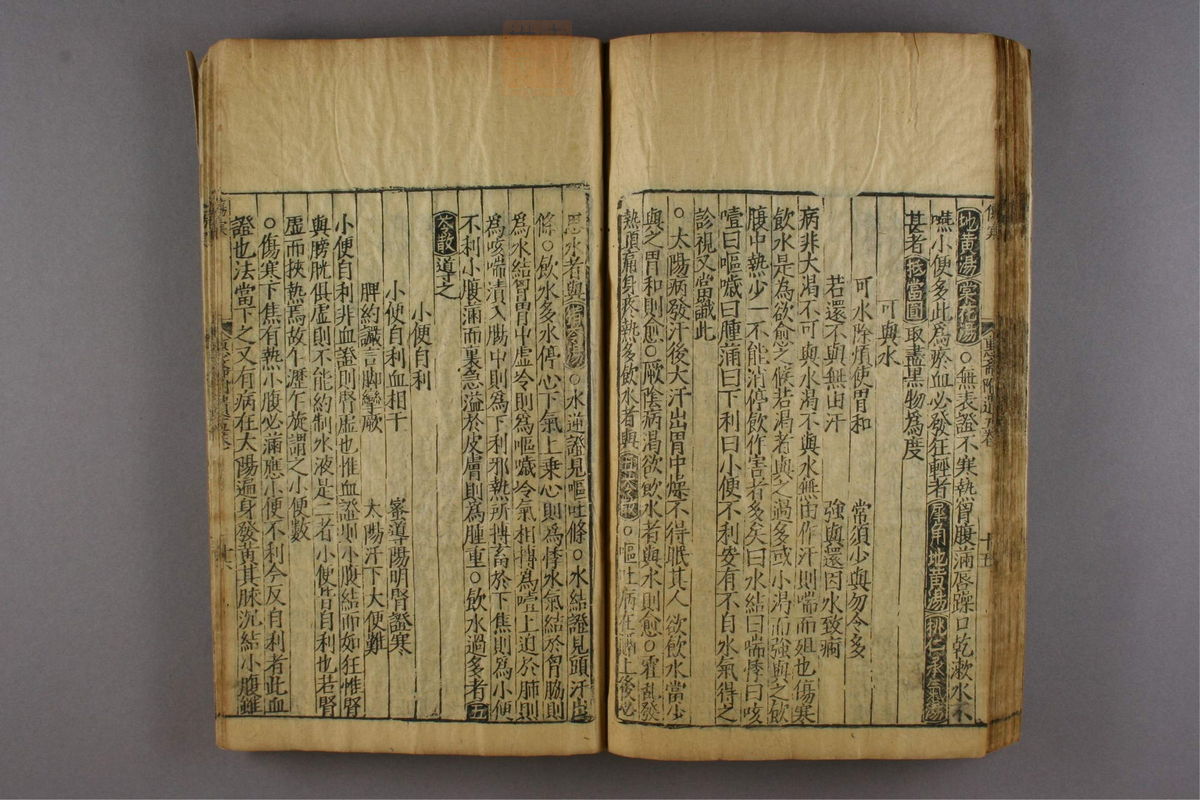 地黃湯 棠花湯 ○無表證不寒熱胷腹滿唇躁口乾漱水不
嚥小便多此為瘀血必發狂輕者犀角地黃湯 桃仁承氣湯
甚者抵當圓取盡黑物為度
可與水
可水除煩使胃和 常須少與勿令多
若還不與無由汗 強與還因水致痾
病非大渴不可與水渴不與水無由作汗則喘而殂也傷寒
飲水是為欲愈之候若渴者與少過多或小渴而強與之飲
腹中熱少一不能消停飲作害者多矣曰水結曰喘悸曰咳
噎曰嘔噦曰腫滿曰下利曰小便不利安有不自水氣得之
診視又當識此
○太陽病發汗後大汗出胃中燥不得眠其人欲飲水當少
與之胃和則愈○厥陰病渴欲飲水者與水則愈○霍亂發
熱頭痛身疼熱多飲水者與五苓散○嘔吐病在膈上後必
思水者與猪苓湯○水逆證見嘔吐條○水結證見頭汗出
條○飲水多水停心下氣上乗心則為悸水氣結於胷脇則
為水結胷胃中虛冷則為嘔噦冷氣相搏為噎上迫於肺則
為咳喘漬入腸中則為下利邪熱所搏蓄於下焦則為小便
不利小腹滿而裏急溢於皮膚則為腫重○飲水過多者五
苓散導之
小便自利
小便自利血相干 宻導陽明腎證寒
脾約讝言脚攣厥 太陽汗下大便難
小便自利非血證則腎虛也惟血證則小腹結而如狂惟腎
與膀胱俱虛則不能約制水液是二者小便皆自利也若腎
虛而挾熱焉故乍瀝乍旋謂之小便數
○傷寒下焦有熱小腹必滿應小便不利今反自利者此血
證也法當下之又有病在太陽遍身發黃其脉沉結小腹雖